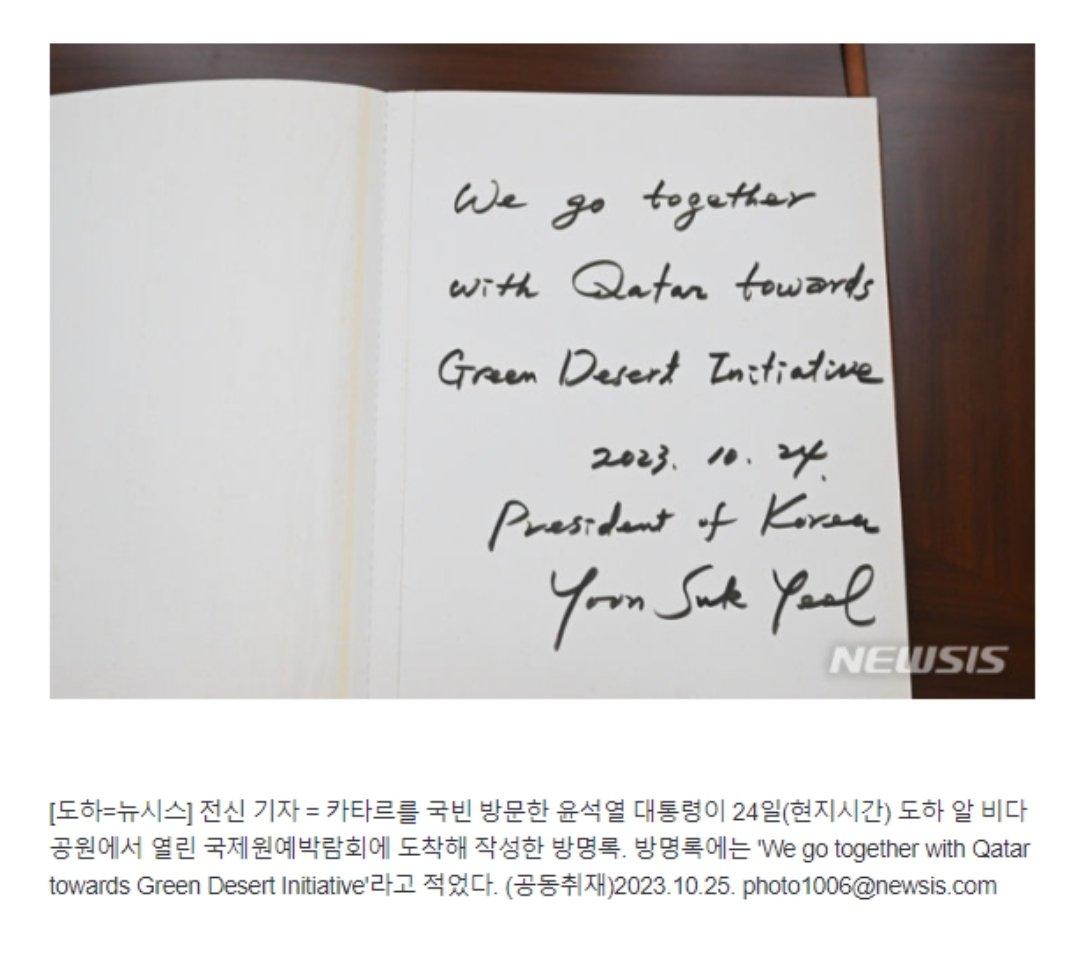 We go together
with Qatar towards
Green Desert Initiative
2023. 10. 24.
President of Korea
Yoon Suk Yeol
NEWSIS
[도하=뉴시스] 전신 기자 = 카타르를 국빈 방문한 윤석열 대통령이 24일(현지시간) 도하 알 비다
공원에서 열린 국제원예박람회에 도착해 작성한 방명록. 방명록에는 'We go together with Qatar
towards Green Desert Initiative'라고 적었다. (공동취재)2023.10.25. photo1006@newsis.com